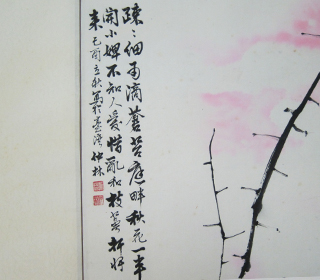 疎々細雨滴蒼苔庭畔秋花一半
開小婢不知人愛惜亂和枝葉折將
來己酉立秋寫於臺灣仲林